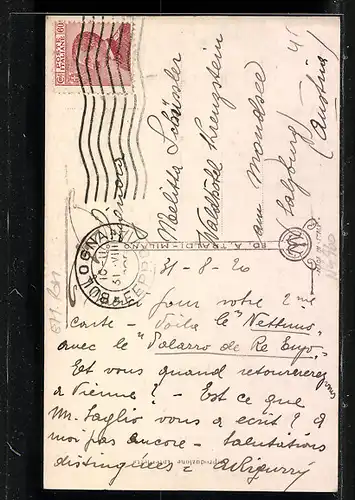 Signora
Melitta Schüssler
Waldhôtel Krengstein
am Mondsee
Salzburg
(Austria)
POSTE ITALIANE
ED. A. TRALDI - MILANO
BOLOGNA
31·VIII
31-8-20
pour votre 2me
carte - Voila le "Nettuno"
avec le "Palazzo de Re Enzo".
Et vous quand retournerez vous
a Vienne? - Est ce que
Mr. Saglio vous a ecrit? à
moi pas encore - Salutations
distinguées -